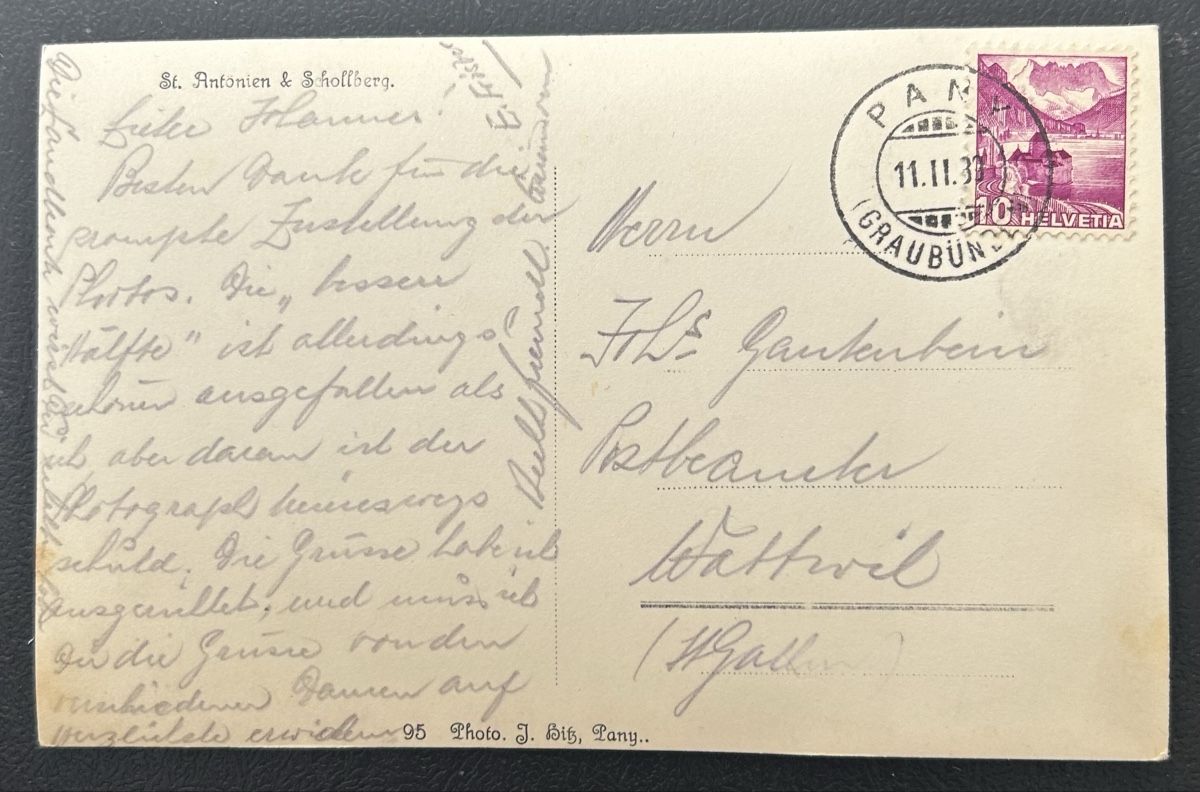 St. Antönien & Schollberg.
Lieber Johannes!
Besten Dank für die
prompte Zustellung der
Photos. Die „bessere
Hälfte" ist allerdings
schöner ausgefallen als
ich aber daran ist der
Photograph keineswegs
schuld. Die Grüsse habe ich
ausgerichtet, und muss ich
Dir die Grüsse von den
verschiedenen Damen auf
herzlichste erwidern
PANY
11.II.39
(GRAUBÜND.)
10 HELVETIA
Herrn
Joh.s Gantenbein
Postbeamter
Wattwil
(St Gallen)
95 Photo. J. Hitz, Pany..